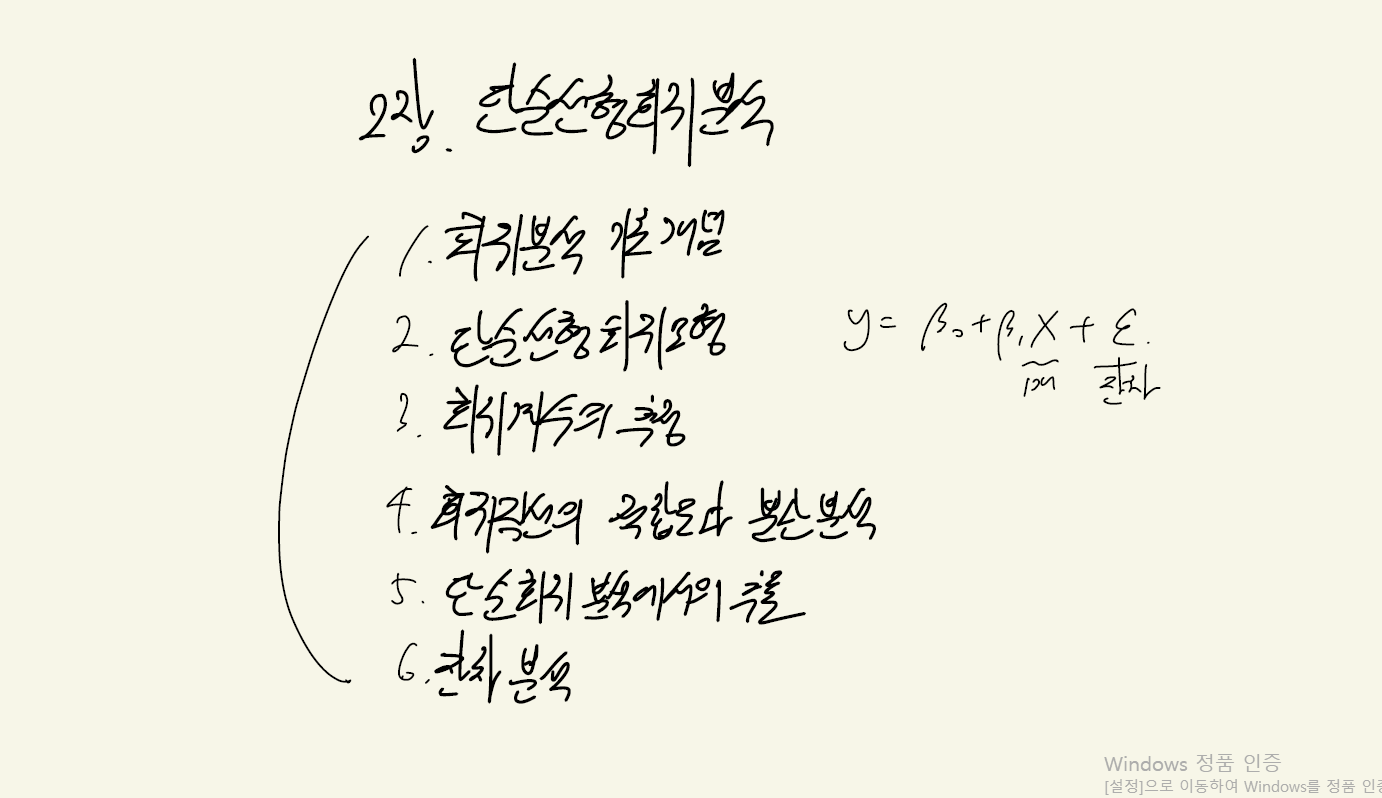 2장. 단순선형회귀분석
1. 회귀분석 기본개념
2. 단순선형회귀모형 y = β₀ + β₁X + ε.
1개 잔차
3. 회귀계수의 추정
4. 회귀직선의 적합도와 분산분석
5. 단순회귀분석에서의 추론
6. 잔차분석
Windows 정품 인증
[설정]으로 이동하여 Windows를 정품 인증